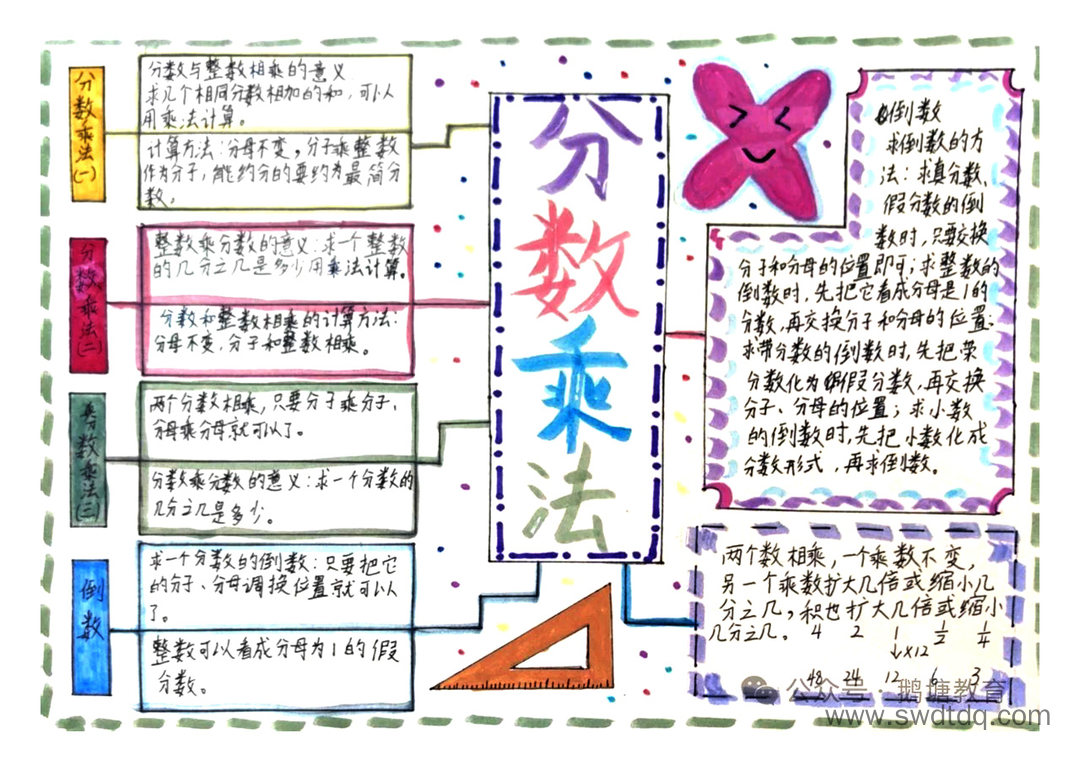 分数乘法(一)
分数与整数相乘的意义
求几个相同分数相加的和，可以
用乘法计算。
计算方法：分母不变，分子乘整数
作为分子，能约分的要约为最简分
数。
分数乘法(二)
整数乘分数的意义：求一个整数
的几分之几是多少用乘法计算。
分数和整数相乘的计算方法：
分母不变，分子和整数相乘。
分数乘法(三)
两个分数相乘，只要分子乘分子、
分母乘分母就可以了。
分数乘分数的意义：求一个分数的
几分之几是多少。
倒数
求一个分数的倒数：只要把它
的分子、分母调换位置就可以
了。
整数可以看成分母为1的假
分数。
分数乘法
倒数
求倒数的方
法：求真分数、
假分数的倒
数时，只要交换
分子和分母的位置即可；求整数的
倒数时，先把它看成分母是1的
分数，再交换分子和分母的位置.
求带分数的倒数时，先把带
分数化为假分数，再交换
分子、分母的位置；求小数
的倒数时，先把小数化成
分数形式，再求倒数。
两个数相乘，一个乘数不变，
另一个乘数扩大几倍或缩小几
分之几，积也扩大几倍或缩小
几分之几。 4 2 1 1/2 1/4
↓×12
48 24 12 6 3
公众号·鹅塘教育
www.swdtdq.com